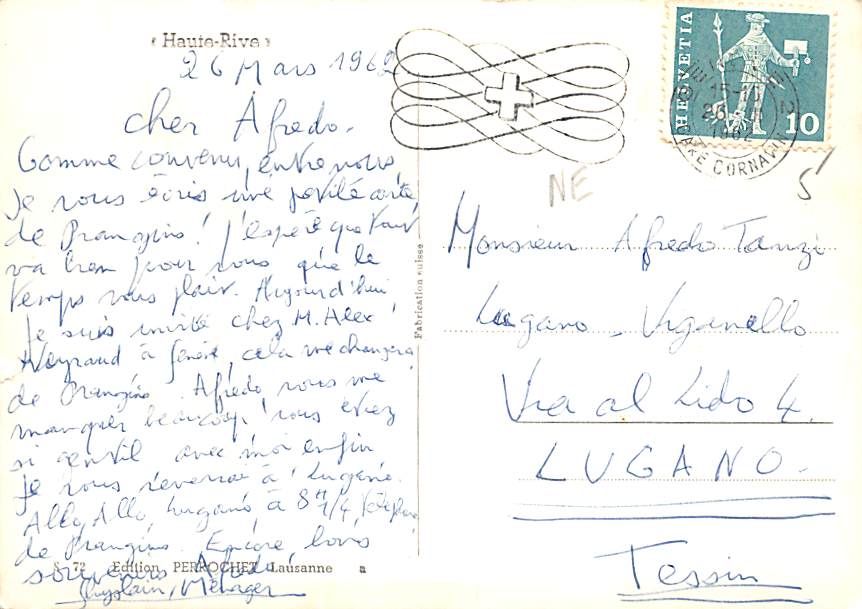 ‹ Haute-Rive ›
26 Mars 1962
cher Afredo.
Comme convenu, entre nous,
je vous écris une petite carte,
de Prangins! j'espère que tout
va bien pour vous que le
temps vous plait. Aujourd'hui
je suis invité chez M. Alex
à Genève, cela me changera
de Prangins. Afredo, vous me
manquer beaucoup! vous étiez
si gentil avec moi enfin
je vous reverrai à Lugano.
Allo, Allo, Lugano à 8 H 1/4
de Prangins. Encore, bons
souvenirs Afredo,
Ghyslain, Ménager
S 72 Edition PERROCHET Lausanne a
Fabrication suisse
HELVETIA
10
15-
26
1962
GARE CORNAVIN
2
NE
5
Monsieur Afredo Tanzi
Lugano - Viganello
Via al Lido 4.
LUGANO.
Tessin